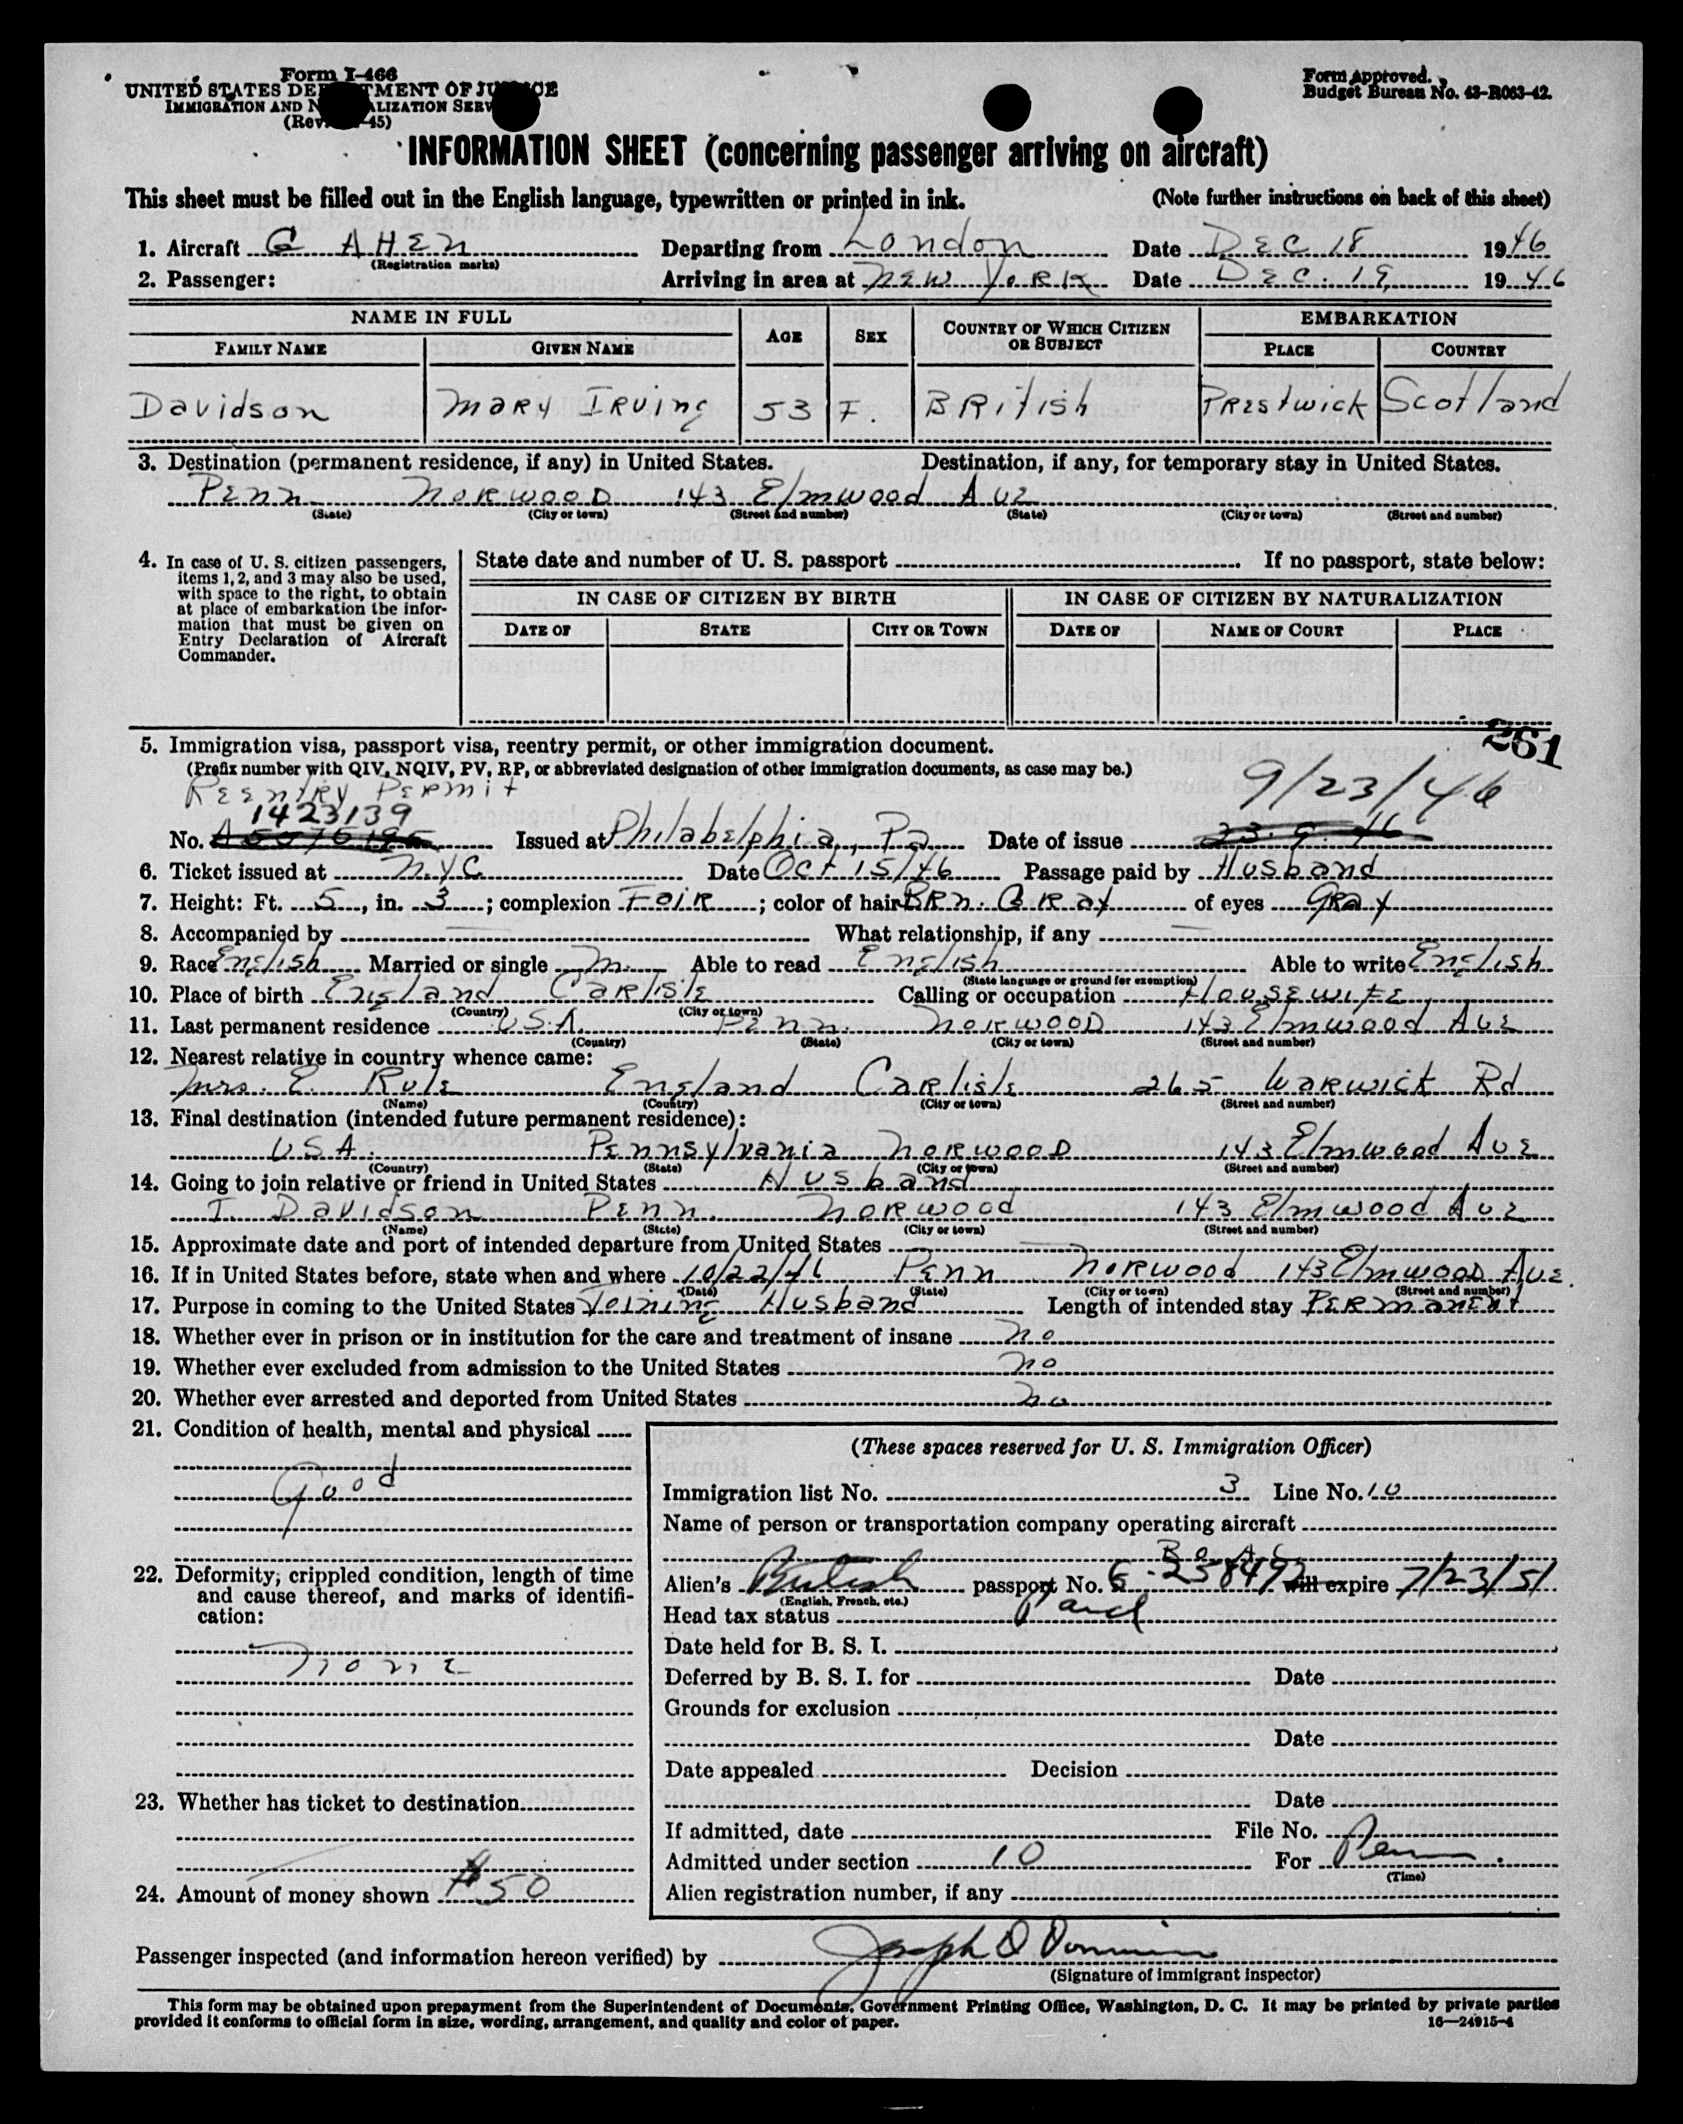 Form I-466
UNITED STATES DEPARTMENT OF JUSTICE
IMMIGRATION AND NATURALIZATION SERV
(Rev. -45)
Form Approved.
Budget Bureau No. 43-R063-42.
INFORMATION SHEET (concerning passenger arriving on aircraft)
This sheet must be filled out in the English language, typewritten or printed in ink. (Note further instructions on back of this sheet)
1. Aircraft G AHEN Departing from London Date DEC 18 1946
(Registration marks)
2. Passenger: Arriving in area at NEW YORK Date DEC. 19, 1946
NAME IN FULL AGE SEX COUNTRY OF WHICH CITIZEN OR SUBJECT EMBARKATION
FAMILY NAME GIVEN NAME PLACE COUNTRY
Davidson MARY IRVING 53 F. BRitish PREstwick Scotland
3. Destination (permanent residence, if any) in United States. Destination, if any, for temporary stay in United States.
PENN NORWOOD 143 Elmwood AVE
(State) (City or town) (Street and number) (State) (City or town) (Street and number)
4. In case of U. S. citizen passengers, items 1, 2, and 3 may also be used, with space to the right, to obtain at place of embarkation the information that must be given on Entry Declaration of Aircraft Commander.
State date and number of U. S. passport If no passport, state below:
IN CASE OF CITIZEN BY BIRTH IN CASE OF CITIZEN BY NATURALIZATION
DATE OF STATE CITY OR TOWN DATE OF NAME OF COURT PLACE
261
5. Immigration visa, passport visa, reentry permit, or other immigration document.
(Prefix number with QIV, NQIV, PV, RP, or abbreviated designation of other immigration documents, as case may be.)
REENTRY PERMit 9/23/46
1423139
No. Issued at Philadelphia, Pa Date of issue 23. 9. 46
6. Ticket issued at N.Y.C Date Oct 15/46 Passage paid by Husband
7. Height: Ft. 5, in. 3; complexion FAIR; color of hair BRn. GRAY of eyes GRAY
8. Accompanied by — What relationship, if any —
9. Race English Married or single M. Able to read English Able to write English
(State language or ground for exemption)
10. Place of birth England Carlisle Calling or occupation HOUSEWIFE
(Country) (City or town)
11. Last permanent residence U.S.A. PENN. NORWOOD 143 Elmwood AVE
(Country) (State) (City or town) (Street and number)
12. Nearest relative in country whence came:
Mrs. E. Rule England CARlisle 265 WARWick Rd
(Name) (Country) (City or town) (Street and number)
13. Final destination (intended future permanent residence):
USA. PENNSylvania NORWOOD 143 Elmwood AVE
(Country) (State) (City or town) (Street and number)
14. Going to join relative or friend in United States Husband
I. Davidson PENN. NORWOOD 143 Elmwood AVE
(Name) (State) (City or town) (Street and number)
15. Approximate date and port of intended departure from United States —
16. If in United States before, state when and where 10/22/46 PENN NORWOOD 143 ElmwOOD AVE.
(Date) (State) (City or town) (Street and number)
17. Purpose in coming to the United States Joining Husband Length of intended stay PERMANENT
18. Whether ever in prison or in institution for the care and treatment of insane no
19. Whether ever excluded from admission to the United States no
20. Whether ever arrested and deported from United States no
21. Condition of health, mental and physical
Good
22. Deformity, crippled condition, length of time and cause thereof, and marks of identification:
None
23. Whether has ticket to destination
24. Amount of money shown $50
(These spaces reserved for U. S. Immigration Officer)
Immigration list No. 3 Line No. 10
Name of person or transportation company operating aircraft
B O A C
Alien's British passport No. 258492 will expire 7/23/51
(English, French, etc.)
Head tax status Paid
Date held for B. S. I.
Deferred by B. S. I. for Date
Grounds for exclusion
Date
Date appealed Decision
Date
If admitted, date File No.
Admitted under section 10 For Perm.
(Time)
Alien registration number, if any
Passenger inspected (and information hereon verified) by Joseph D
(Signature of immigrant inspector)
This form may be obtained upon prepayment from the Superintendent of Documents, Government Printing Office, Washington, D. C. It may be printed by private parties
provided it conforms to official form in size, wording, arrangement, and quality and color of paper. 16—24915-4